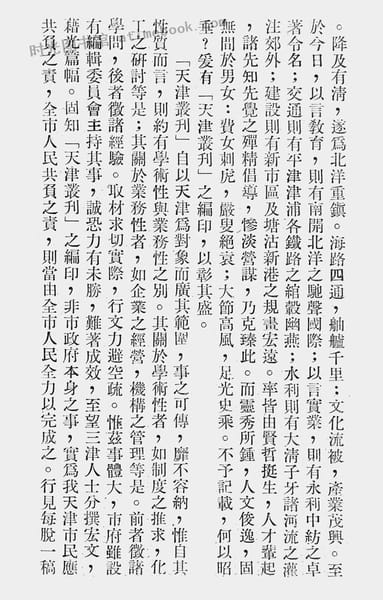 。降及有淸，遂爲北洋重鎭。海路四通，舳艫千里；文化流被，產業茂興。至
於今日，以言敎育，則有南開北洋之馳聲國際；以言實業，則有永利中紡之卓
著令名；交通則有平津津浦各鐵路之綰轂幽燕；水利則有大淸子牙諸河流之灌
注郊外；建設則有新市區及塘沽新港之規畫宏遠。率皆由賢哲挺生，人才輩起
，諸先知先覺之殫精倡導，慘淡營謀，乃克臻此。而靈秀所鍾，人文俊逸，固
無間於男女：費女刺虎，嚴叟絕袁；大節高風，足光史乘。不予記載，何以昭
垂？爰有「天津叢刊」之編印，以彰其盛。
「天津叢刊」自以天津爲對象而廣其範圍，事之可傳，靡不容納，惟自其
性質而言，則約有學術性與業務性之別。其關於學術性者，如制度之推求，化
工之硏討等是；其關於業務性者，如企業之經營，機構之管理等是。前者徵諸
學問，後者徵諸經驗。取材求切實際，行文力避空疏。惟茲事體大，市府雖設
有編輯委員會主持其事，誠恐力有未勝，難著成效，至望三津人士分撰宏文，
藉光篇幅。固知「天津叢刊」之編印，非市政府本身之事，實爲我天津市民應
共負之責，全市人民共負之責，則當由全市人民全力以完成之。行見每脫一稿